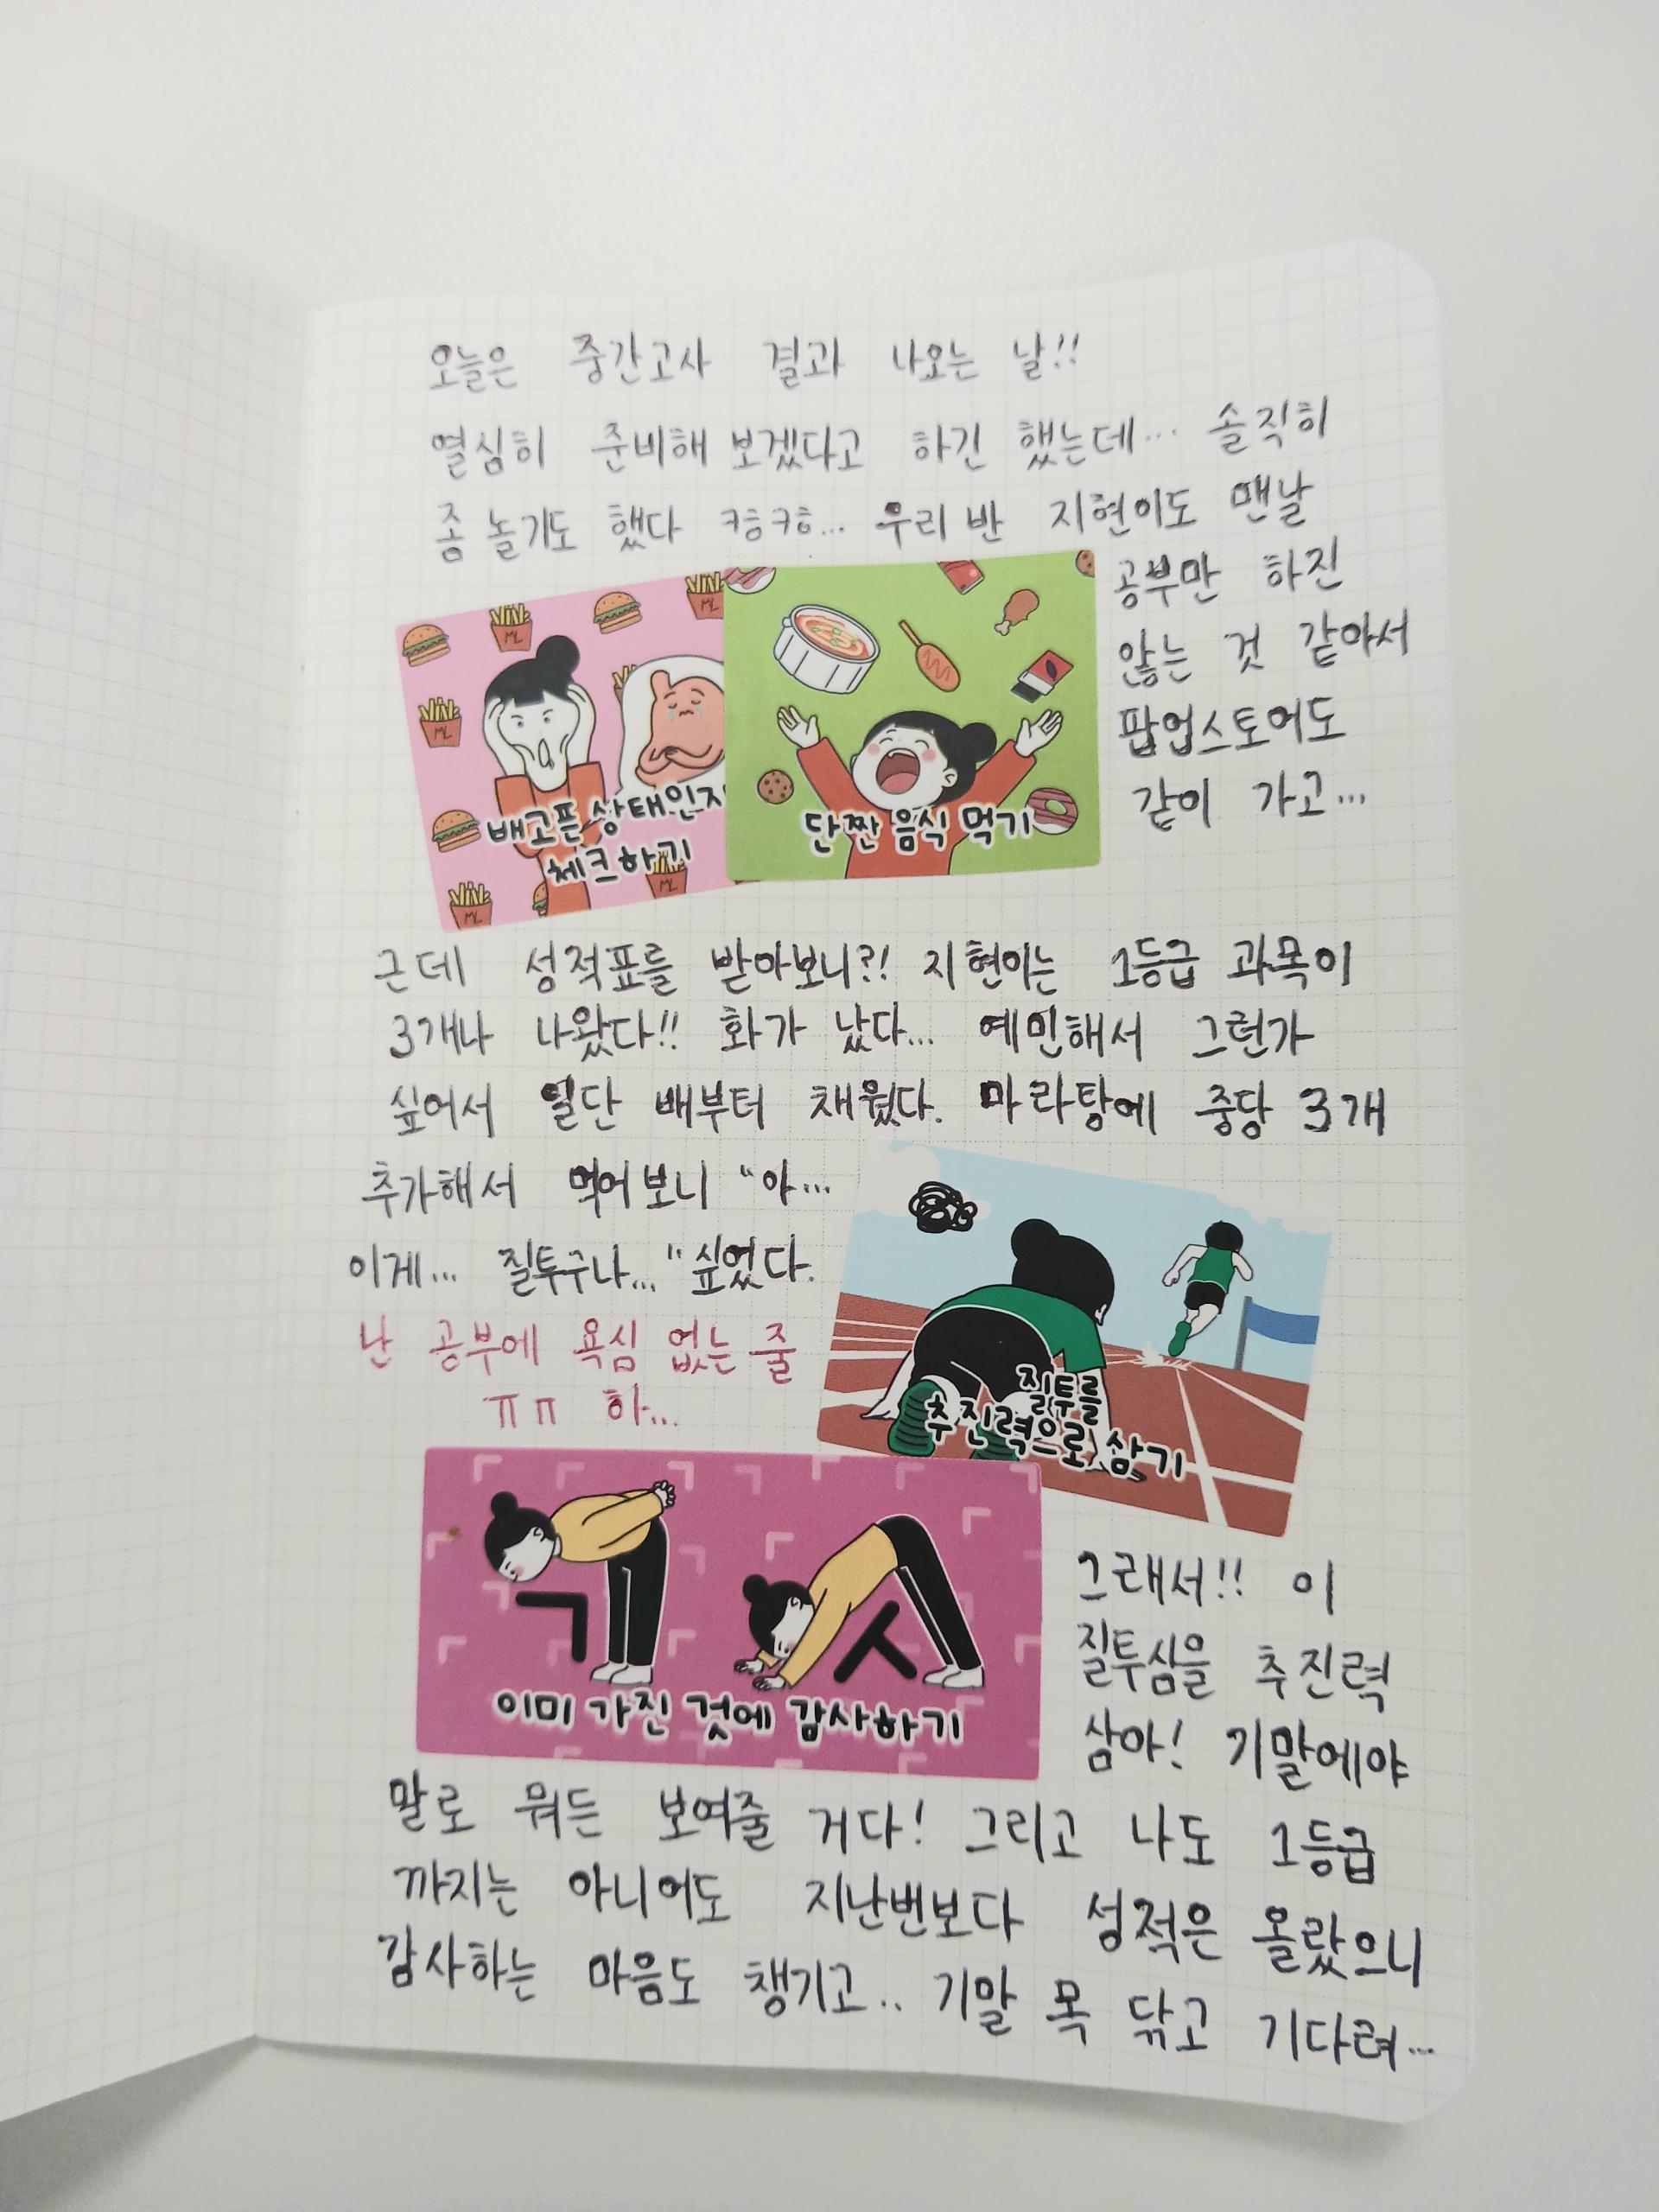 오늘은 중간고사 결과 나오는 날!!
열심히 준비해 보겠다고 하긴 했는데... 솔직히
좀 놀기도 했다 ㅋㅎㅋㅎ... 우리 반 지현이도 맨날
공부만 하진
않는 것 같아서
팝업스토어도
같이 가고...
ML
ML
ML
ML
ML
배고픈 상태인지
체크하기
단짠 음식 먹기
근데 성적표를 받아보니?! 지현이는 1등급 과목이
3개나 나왔다!! 화가 났다... 예민해서 그런가
싶어서 일단 배부터 채웠다. 마라탕에 중당 3개
추가해서 먹어보니 "아...
이게... 질투구나..." 싶었다.
난 공부에 욕심 없는 줄
ㅠㅠ 하...
질투를
추진력으로 삼기
ㄱ ㅅ
이미 가진 것에 감사하기
그래서!! 이
질투심을 추진력
삼아! 기말에야
말로 뭐든 보여줄 거다! 그리고 나도 1등급
까지는 아니어도 지난번보다 성적은 올랐으니
감사하는 마음도 챙기고.. 기말 목 닦고 기다려...